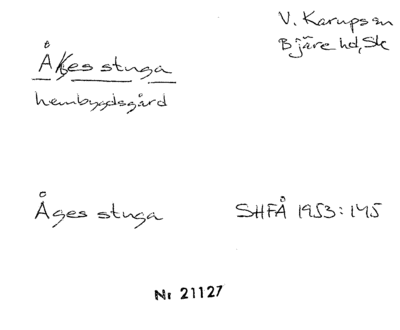 V. Karups sn
Bjäre hd, Sk
Åges stuga
hembygdsgård
Åges stuga SHFÅ 1953:145
Nr 21127